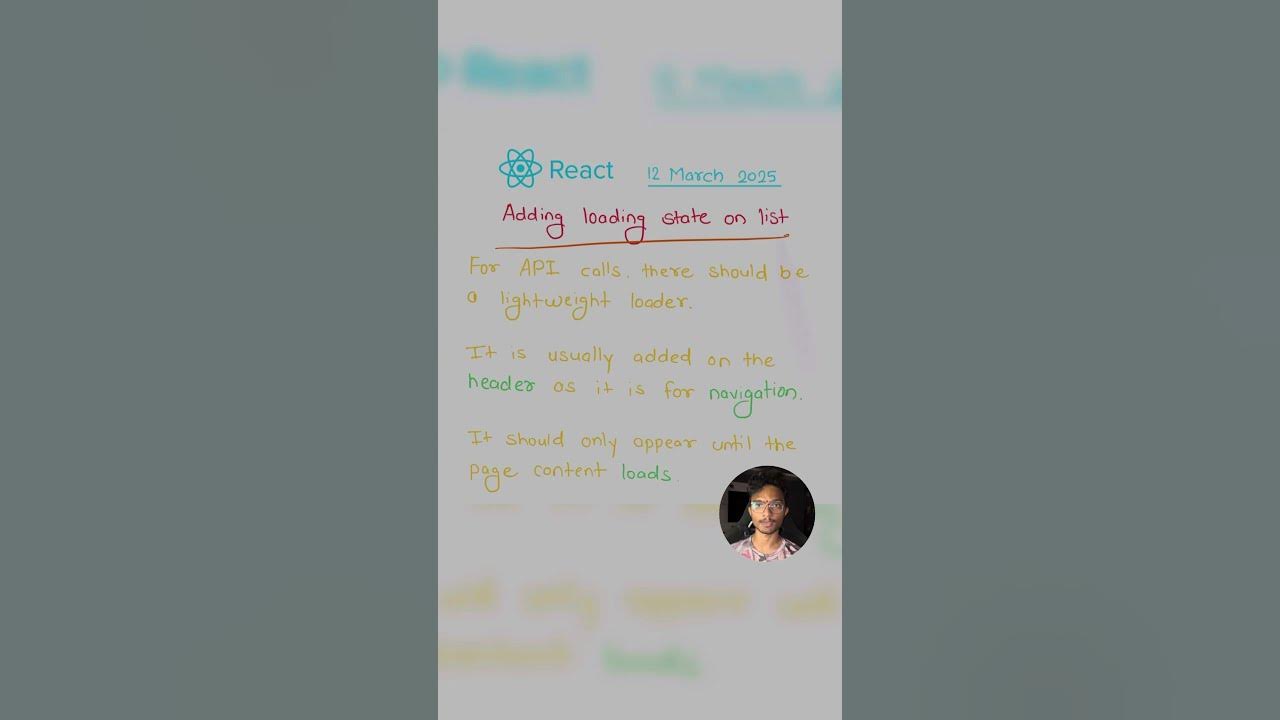 React
12 March 2025
Adding loading state on list
For API calls. there should be
a lightweight loader.
It is usually added on the
header as it is for navigation.
It should only appear until the
page content loads.